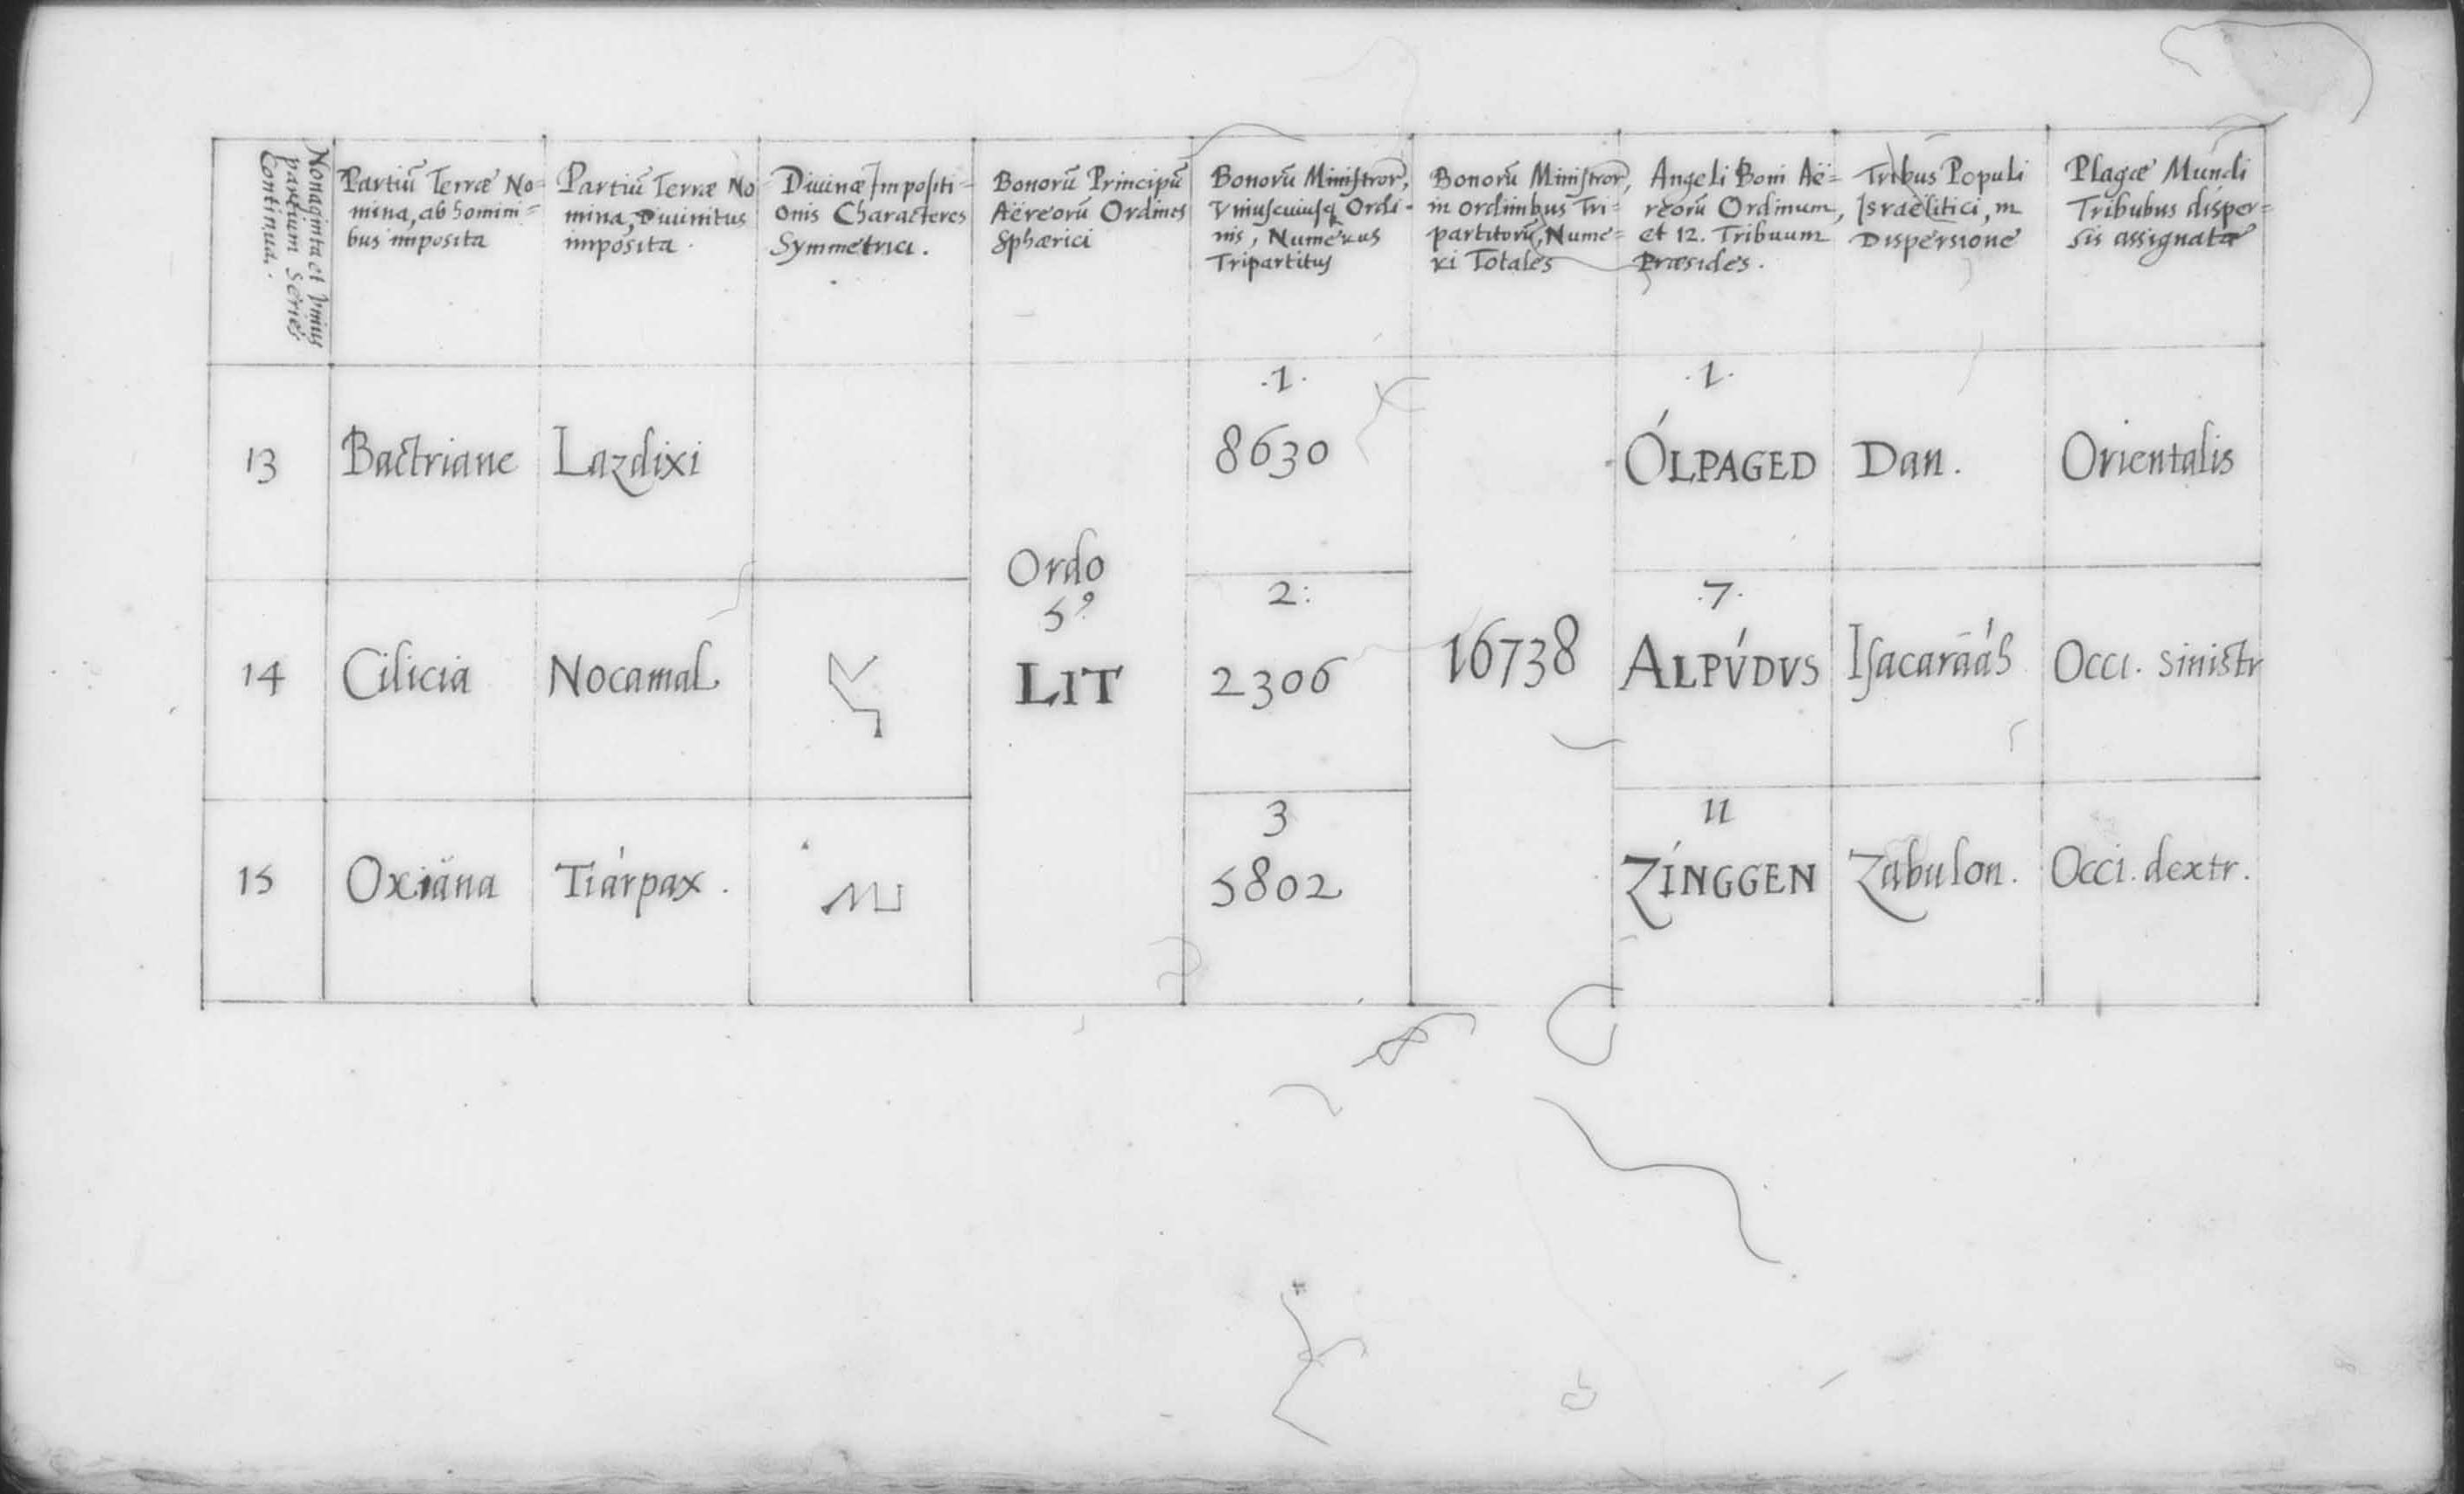 Nonaginta et Vnius
partium Series
Continua.
Partiū Terræ No=
mina, ab homini=
bus imposita
Partiū Terræ No
mina, Diuinitus
imposita.
Diuinæ Impositi=
onis Characteres
Symmetrici.
Bonorū Principū
Aëreorū Ordines
Sphærici
Bonorū Ministror,
Vniuscuiusq Ordi-
nis, Numerus
Tripartitus
Bonorū Ministror,
in ordinibus Tri=
partitorū, Nume=
ri Totales
Angeli Boni Aë=
reorū Ordinum,
et 12. Tribuum
Præsides.
Tribus Populi
Israëlitici, in
Dispersione
Plagæ Mundi
Tribubus disper=
sis assignatæ
13
Bactriane
Lazdixi
.1.
8630
.1.
ÓLPAGED
Dan.
Orientalis
Ordo
5º
LIT
14
Cilicia
Nocamal
2:
2306
16738
.7.
ALPÚDVS
Isacarāáh
Occi. sinistr
15
Oxiăna
Tiárpax.
3
5802
11
ZÍNGGEN
Zabulon.
Occi. dextr.